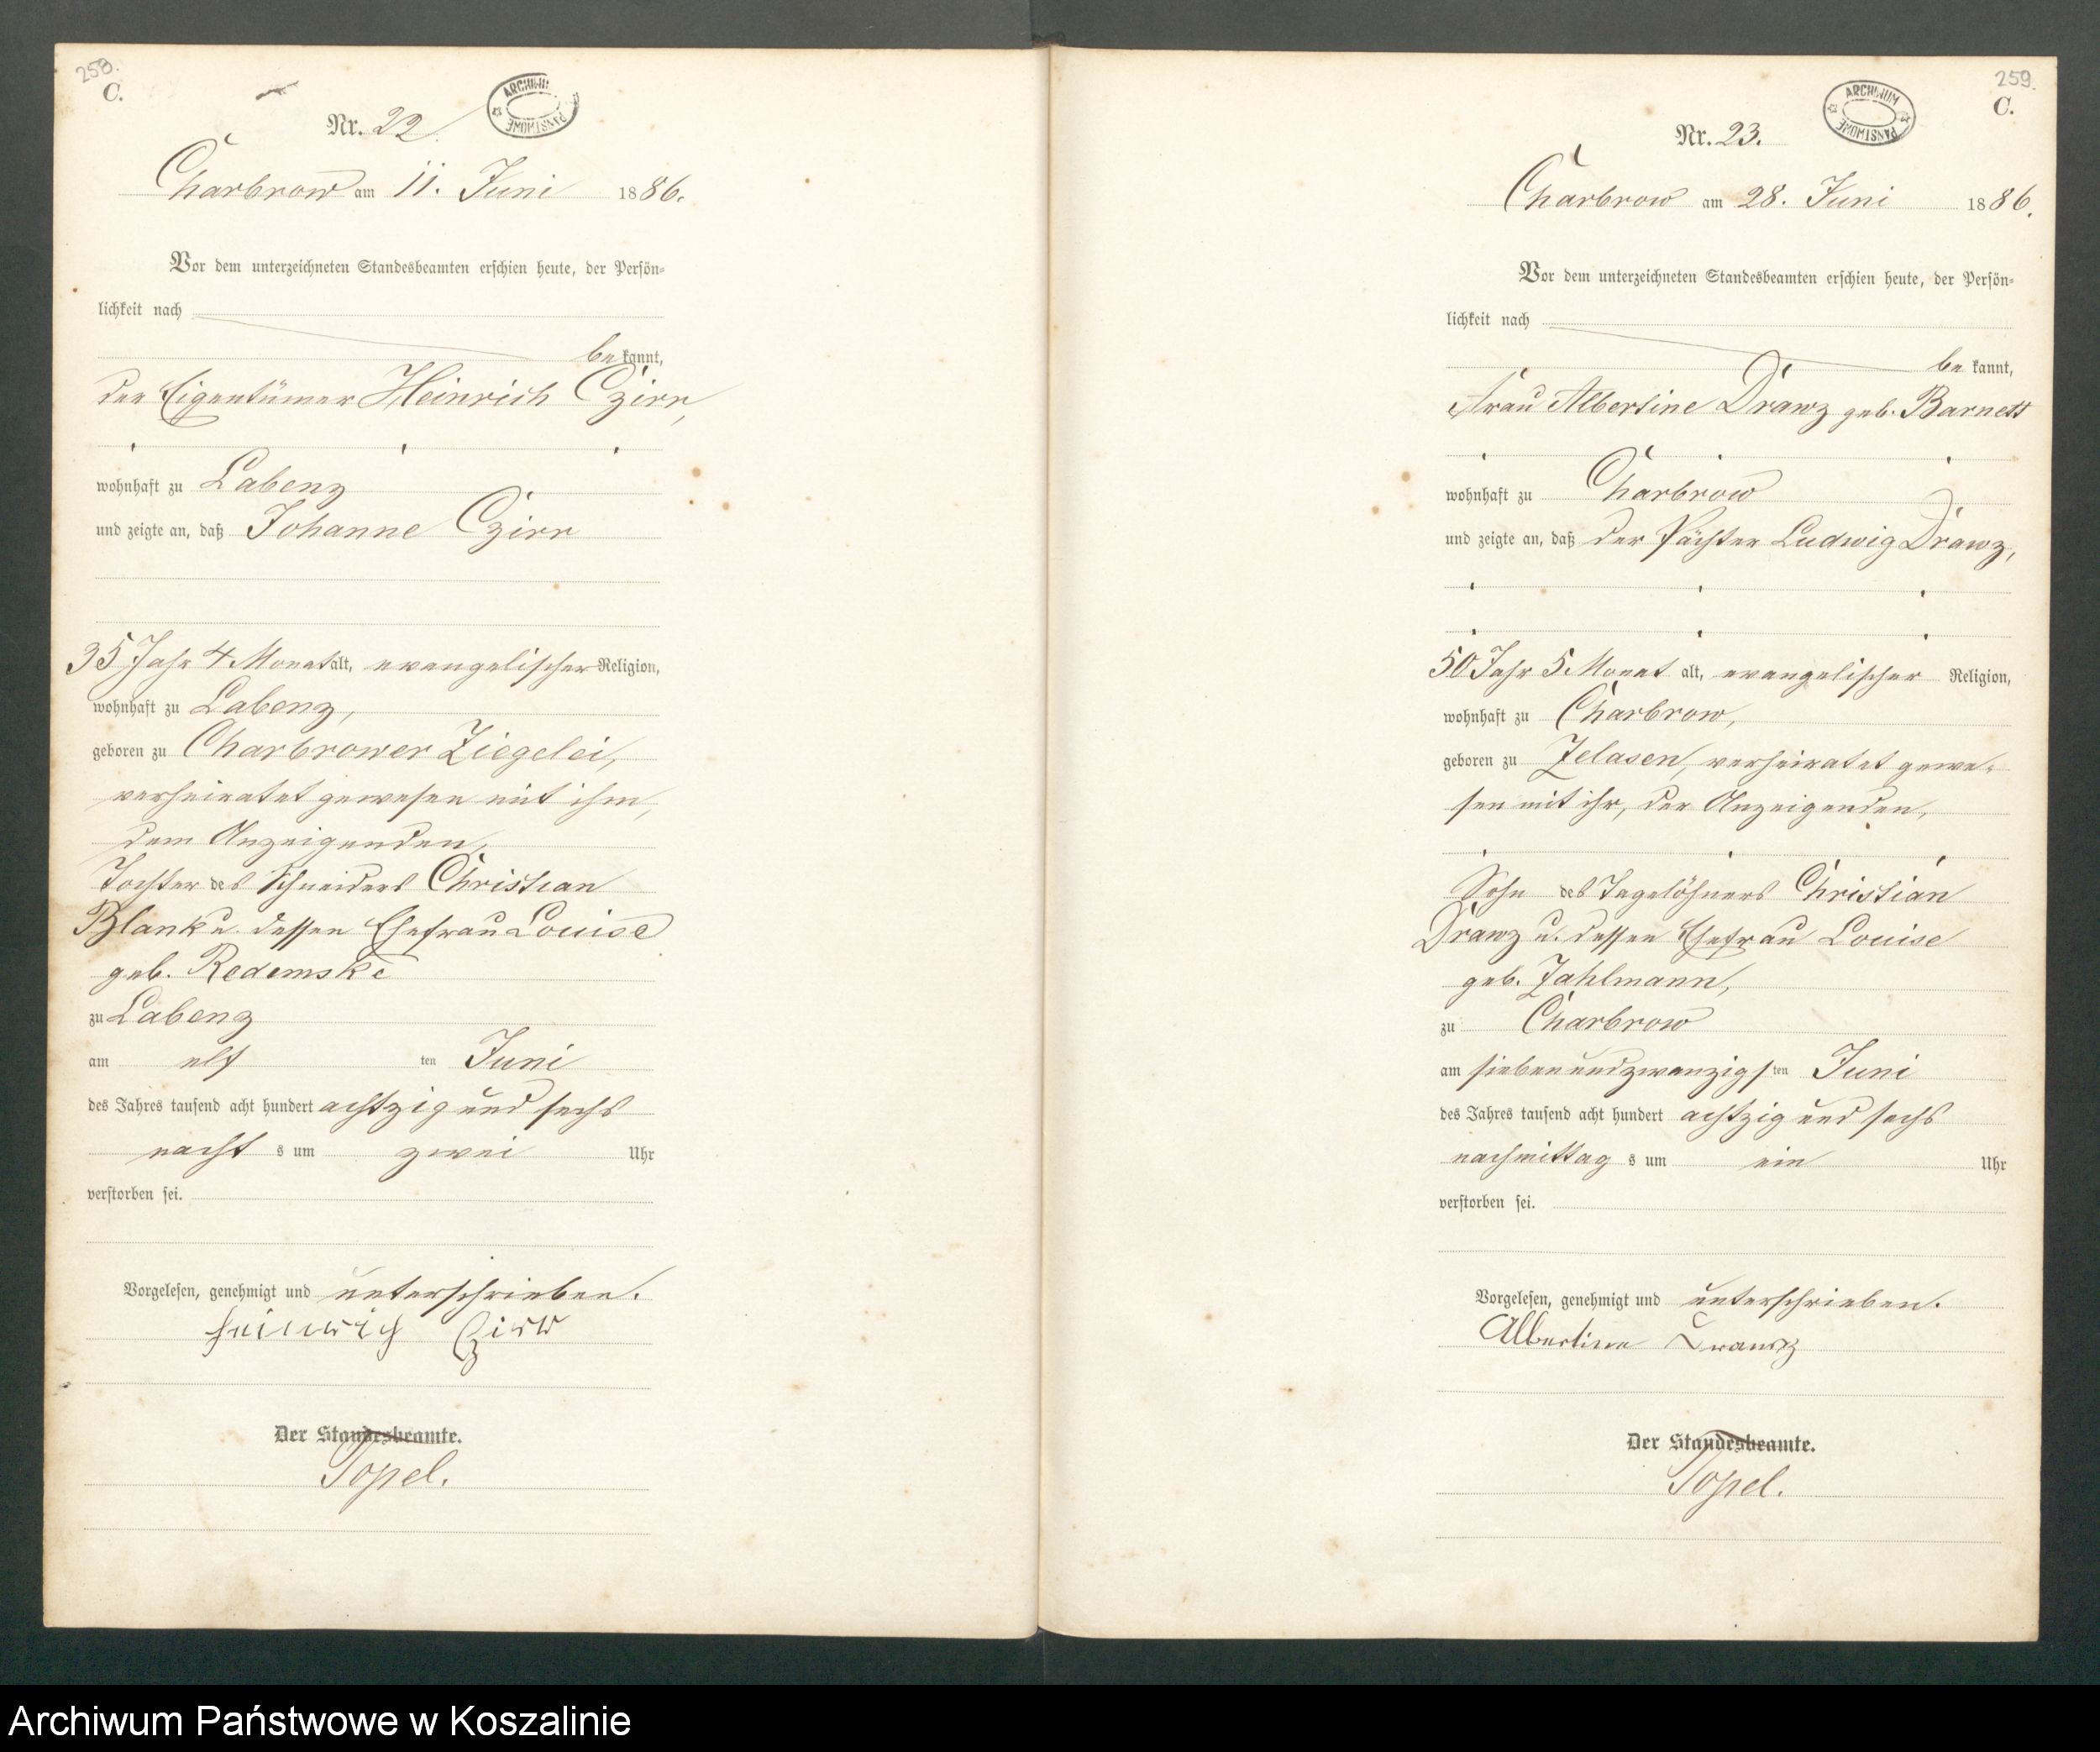 258.
C.
ARCHIWUM PAŃSTWOWE
Nr. 22
Charbrow am 11. Juni 1886.
Vor dem unterzeichneten Standesbeamten erschien heute, der Persön-
lichkeit nach
be kannt,
der Eigentümer Heinrich Czirr,
wohnhaft zu Labenz
und zeigte an, daß Johanne Czirr
35 Jahr 4 Monat alt, evangelischer Religion,
wohnhaft zu Labenz,
geboren zu Charbrower Ziegelei,
verheiratet gewesen mit ihm,
dem Anzeigenden,
Tochter des Schneiders Christian
Blank u. dessen Ehefrau Louise
geb. Redemske
zu Labenz
am elf ten Juni
des Jahres tausend acht hundert achtzig und sechs
nacht s um zwei Uhr
verstorben sei.
Vorgelesen, genehmigt und unterschrieben.
Heinrich Czirr
Der Standesbeamte.
Topel.
259.
C.
ARCHIWUM PAŃSTWOWE
Nr. 23.
Charbrow am 28. Juni 1886.
Vor dem unterzeichneten Standesbeamten erschien heute, der Persön-
lichkeit nach
be kannt,
Frau Albertine Drawz geb. Barnett
wohnhaft zu Charbrow
und zeigte an, daß der Pächter Ludwig Drawz,
50 Jahr 5 Monat alt, evangelischer Religion,
wohnhaft zu Charbrow,
geboren zu Zelasen, verheiratet gewe-
sen mit ihr, der Anzeigenden,
Sohn des Tagelöhners Christian
Drawz u. dessen Ehefrau Louise
geb. Zahlmann,
zu Charbrow
am siebenundzwanzigsten Juni
des Jahres tausend acht hundert achtzig und sechs
nachmittag s um ein Uhr
verstorben sei.
Vorgelesen, genehmigt und unterschrieben.
Albertine Drawz
Der Standesbeamte.
Topel.
Archiwum Państwowe w Koszalinie